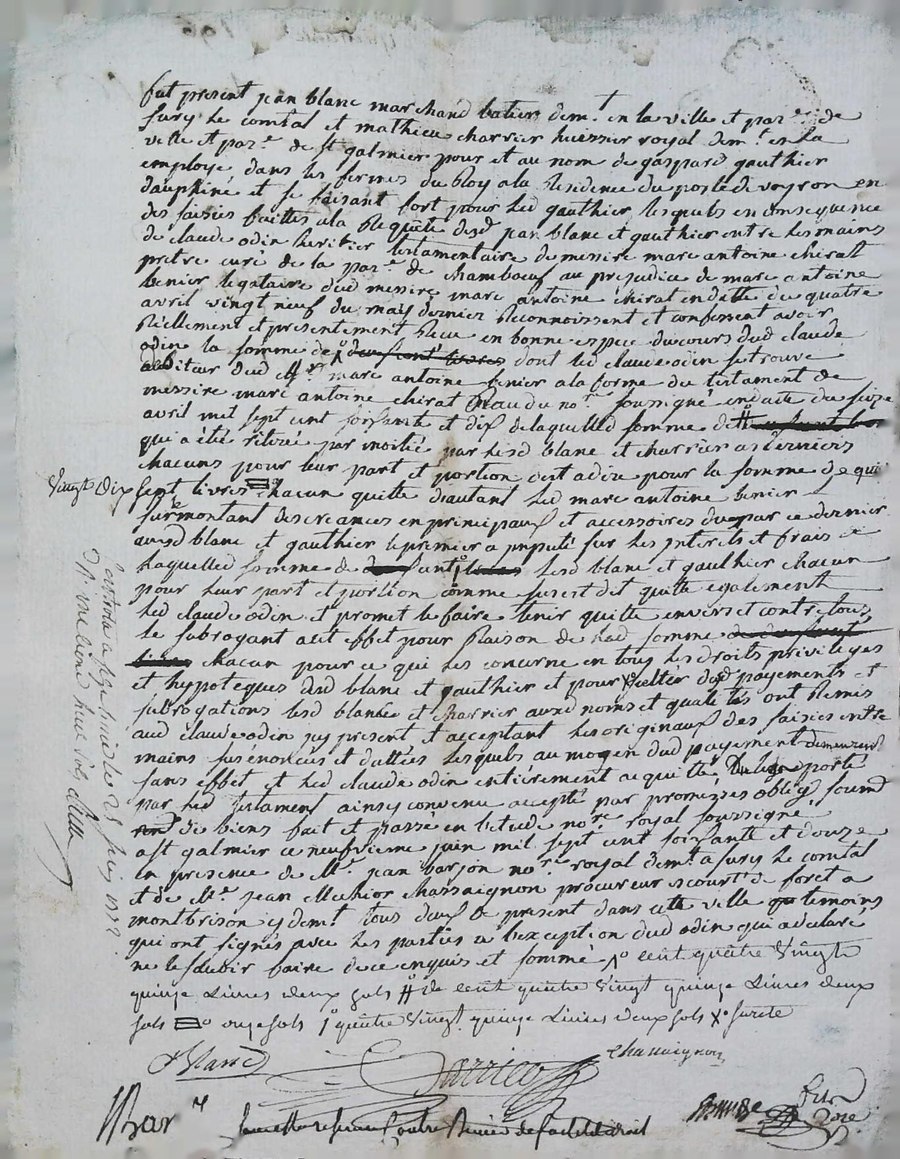 fut present jean blanc marchand batier demt en la ville et parse de
sury le comtal et mathieu charrier huissier royal demt en la
ville et parse de st galmier pour et au nom de gaspard gauthier
employe dans les fermes du Roy a la Residence du poste de voyron en
dauphine et se faisant fort pour led gauthier, lesquels en consequence
des saisies faittes a la Requete desd jean blanc et gauthier entre les mains
de claude odin heritier testamentaire de messire marc antoine chirat
pretre curé de la parse de chambœuf au prejudice de marc antoine
benier legataire dud messire marc antoine chirat en datte du quatre
avril vingt neuf du mois dernier Reconnoissent et confessent avoir
Réellement et presentement Receu en bonne espece du cours dud claude
odin la somme de 1o dont led claude odin se trouve
debiteur dud Mr marc antoine benier a la forme du testament de
messire marc antoine chirat Receu du nore soussigné en datte du seize
avril mil sept cent soixante et dix de laquelle somme de #o
qui a été Retirée par moitié par lesd blanc et charrier as d derniers
chacuns pour leur part et portion c'est a dire pour la somme de qui
vingt dix sept livres chacun quitte d'autant led marc antoine benier
surmontant des creances en principaux et accessoires du par ce dernier
auxd blanc et gauthier le premier a imputé sur les interets et frais de
laquelle somme de 1o lesd blanc et gauthier chacun
pour leur part et portion comme susest dit quitte egalement
led claude odin et promet le faire tenir quitte envers et contre tous
le subrogant a cet effet pour Raison de lad somme
chacun pour ce qui les concerne en tous les droits privileges
et hypoteques desd blanc et gauthier et pour X desd payements et
subrogations lesd blanc et charrier auxd noms et qualités ont Remis
aud claude odin icy present et acceptant les originaux des saisies entre
mains susenoncés et dattées lesquels au moyen dud payement demeurent
sans effet et led claude odin entierement acquitté du porté
par led testament ainsy convenu accepté par promesses oblig soumd
de biens fait et passé en l'etude nore royal soussigné
a st galmier ce neufvieme juin mil sept cent soixante et douze
en presence de Me jean barjon nore royal demt a sury le comtal
et de Me jean Melchior chassaignon procureur es court de foret a
montbrison y demt tous deux de present dans cette ville temoins
qui ont signés avec les parties a l'exception dud odin qui a declaré
ne le scavoir faire de ce enquis et sommé 1o cent quatre vingt
quinze livres deux sols #o de cent quatre vingt quinze livres deux
sols onze sols 1o quatre vingt quinze livres deux sols Xo surete
Blanc
Charrier
chassaignon
Barjon